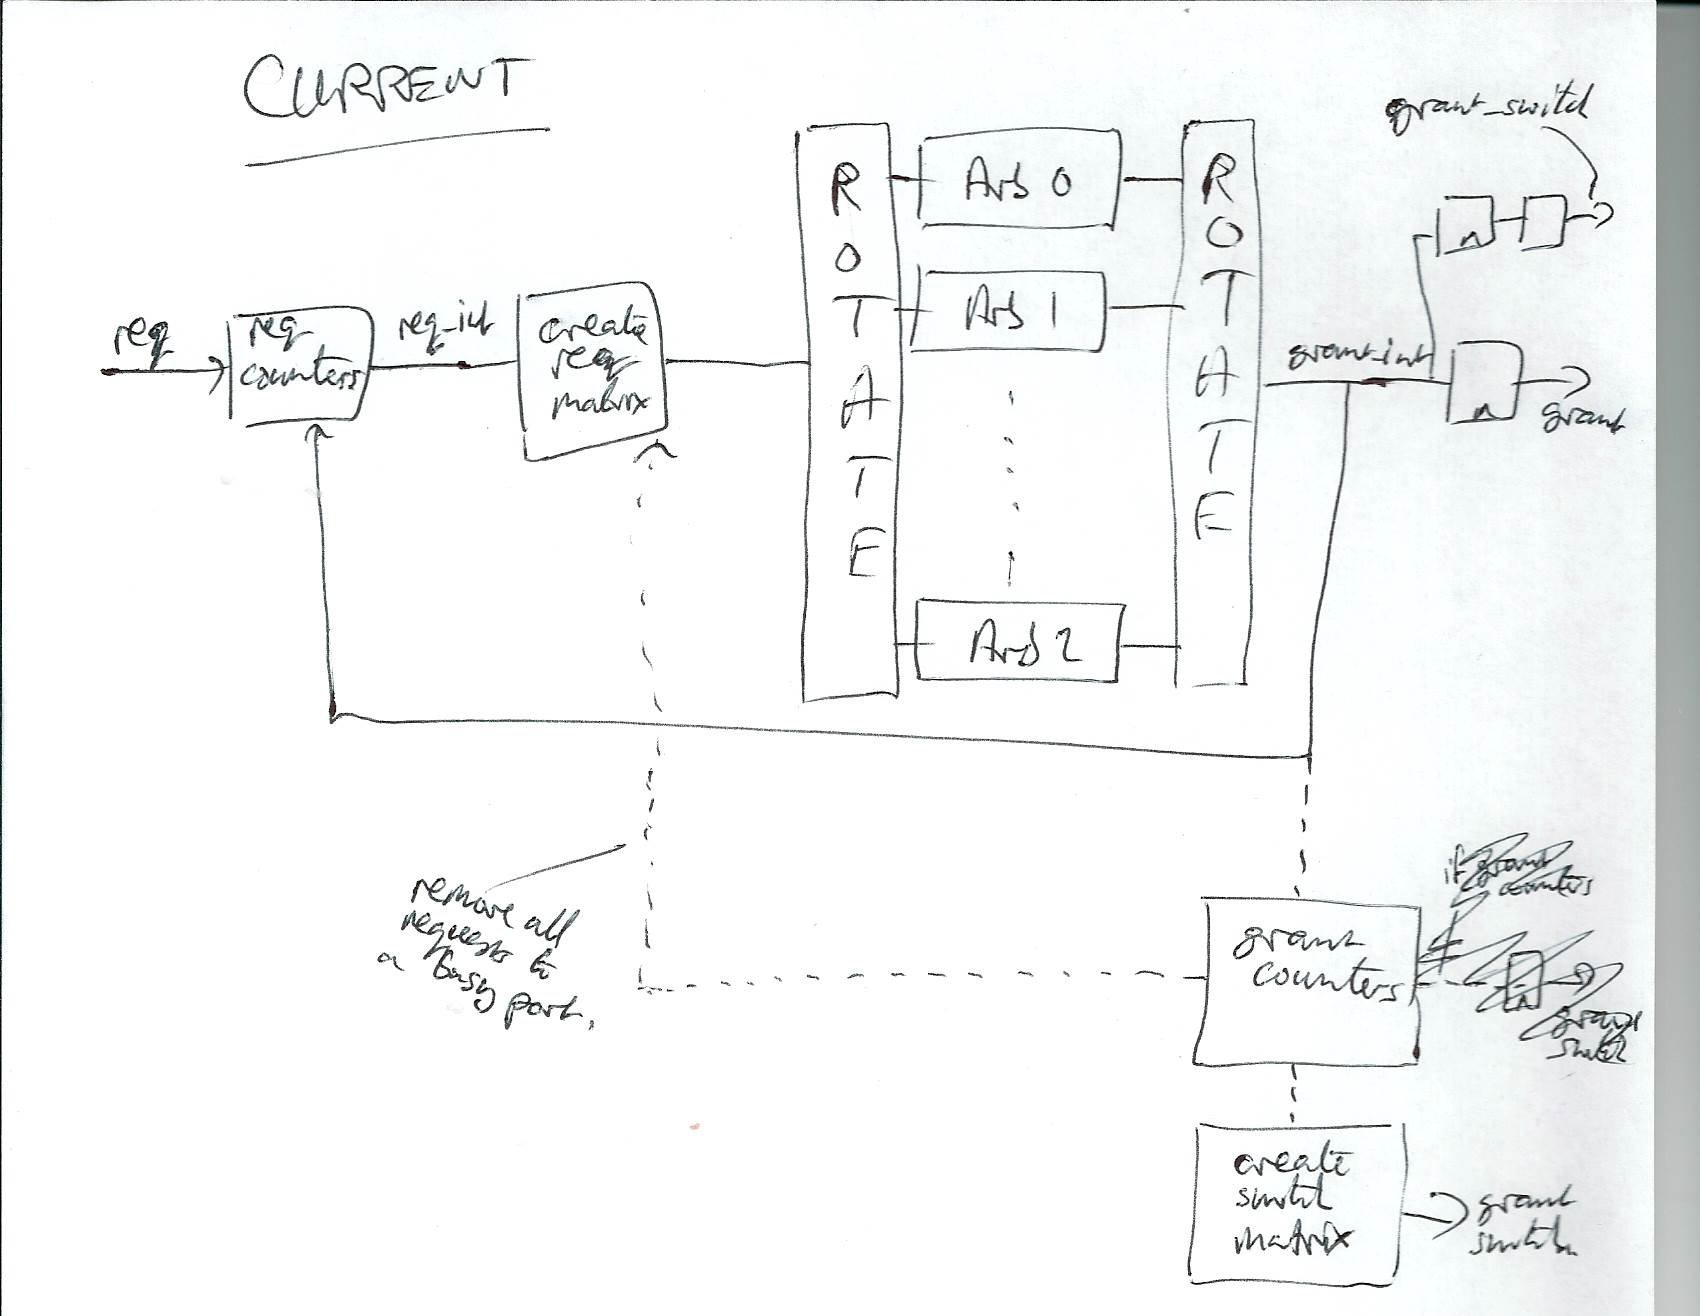 CURRENT
grant_switch
req
req
counters
req_int
create
req
matrix
ROTATE
Arb 0
Arb 1
Arb 2
ROTATE
grant_int
grant
remove all
requests to
a busy port.
grant
counters
if grant
counters
grant
switch
create
switch
matrix
grant
switch